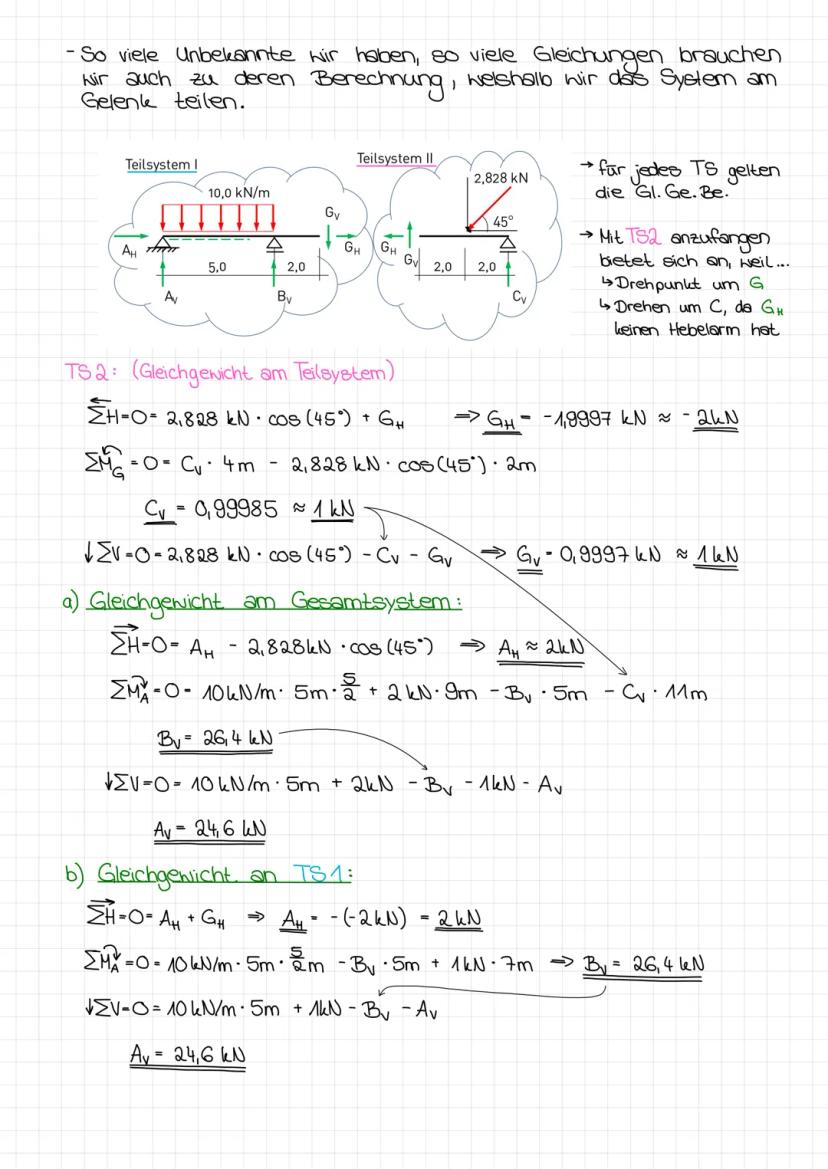 - So viele Unbekannte wir haben, so viele Gleichungen brauchen
wir auch zu deren Berechnung, weshalb wir das System am
Gelenk teilen.
Teilsystem I
10,0 kN/m
A_H
A_V
5,0
B_V
2,0
G_V
G_H
Teilsystem II
2,828 kN
45°
G_H
G_V
2,0
2,0
C_V
→ für jedes TS gelten
die Gl. Ge. Be.
→ Mit TS2 anzufangen
bietet sich an, weil...
↳ Drehpunkt um G
↳ Drehen um C, da G_H
keinen Hebelarm hat
TS2: (Gleichgewicht am Teilsystem)
ΣH=0= 2,828 kN · cos (45°) + G_H ⇒ G_H = -1,9997 kN ≈ - 2kN
ΣM_G = 0 = C_V · 4m - 2,828 kN · cos (45°) · 2m
C_V = 0,99985 ≈ 1 kN
↓ΣV=0= 2,828 kN · cos (45°) - C_V - G_V ⇒ G_V = 0,9997 kN ≈ 1kN
a) Gleichgewicht am Gesamtsystem:
ΣH=0= A_H - 2,828kN · cos (45°) ⇒ A_H ≈ 2kN
ΣM_A = 0 = 10kN/m · 5m · 5/2 + 2 kN · 9m - B_V · 5m - C_V · 11m
B_V = 26,4 kN
↓ΣV=0= 10 kN/m · 5m + 2kN - B_V - 1kN - A_V
A_V = 24,6 kN
b) Gleichgewicht an TS1:
ΣH=0= A_H + G_H ⇒ A_H = - (-2kN) = 2kN
ΣM_A = 0 = 10kN/m · 5m · 5/2 m - B_V · 5m + 1kN · 7m ⇒ B_V = 26,4 kN
↓ΣV=0= 10 kN/m · 5m + 1kN - B_V - A_V
A_V = 24,6 kN